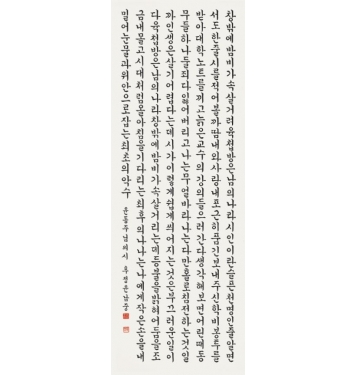 창밖에밤비가속살거려육첩방은남의나라시인이란슬픈천명인줄알면
서도한줄시를적어볼까땀내와사랑내포근히품긴보내주신학비봉투를
받아대학노트를끼고늙은교수의강의들으러간다생각해보면어린때동
무들하나둘죄다잃어버리고나는무얼바라나는다만홀로침전하는것일
까인생은살기어렵다는데시가이렇게쉽게씌어지는것은부끄러운일이
다육첩방은남의나라창밖에밤비가속살거리는데등불을밝혀어둠을조
금내몰고시대처럼올아침을기다리는최후의나나는나에게작은손을내
밀어눈물과위안으로잡는최초의악수 윤동주님의시